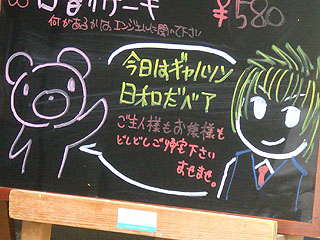 日替りケーキ ¥580
何があるかは エンジェルに聞いて下さい
今日はギャルソン
日和だベア
ご主人様もお嬢様も
どしどしご帰宅下さい
ませませ。